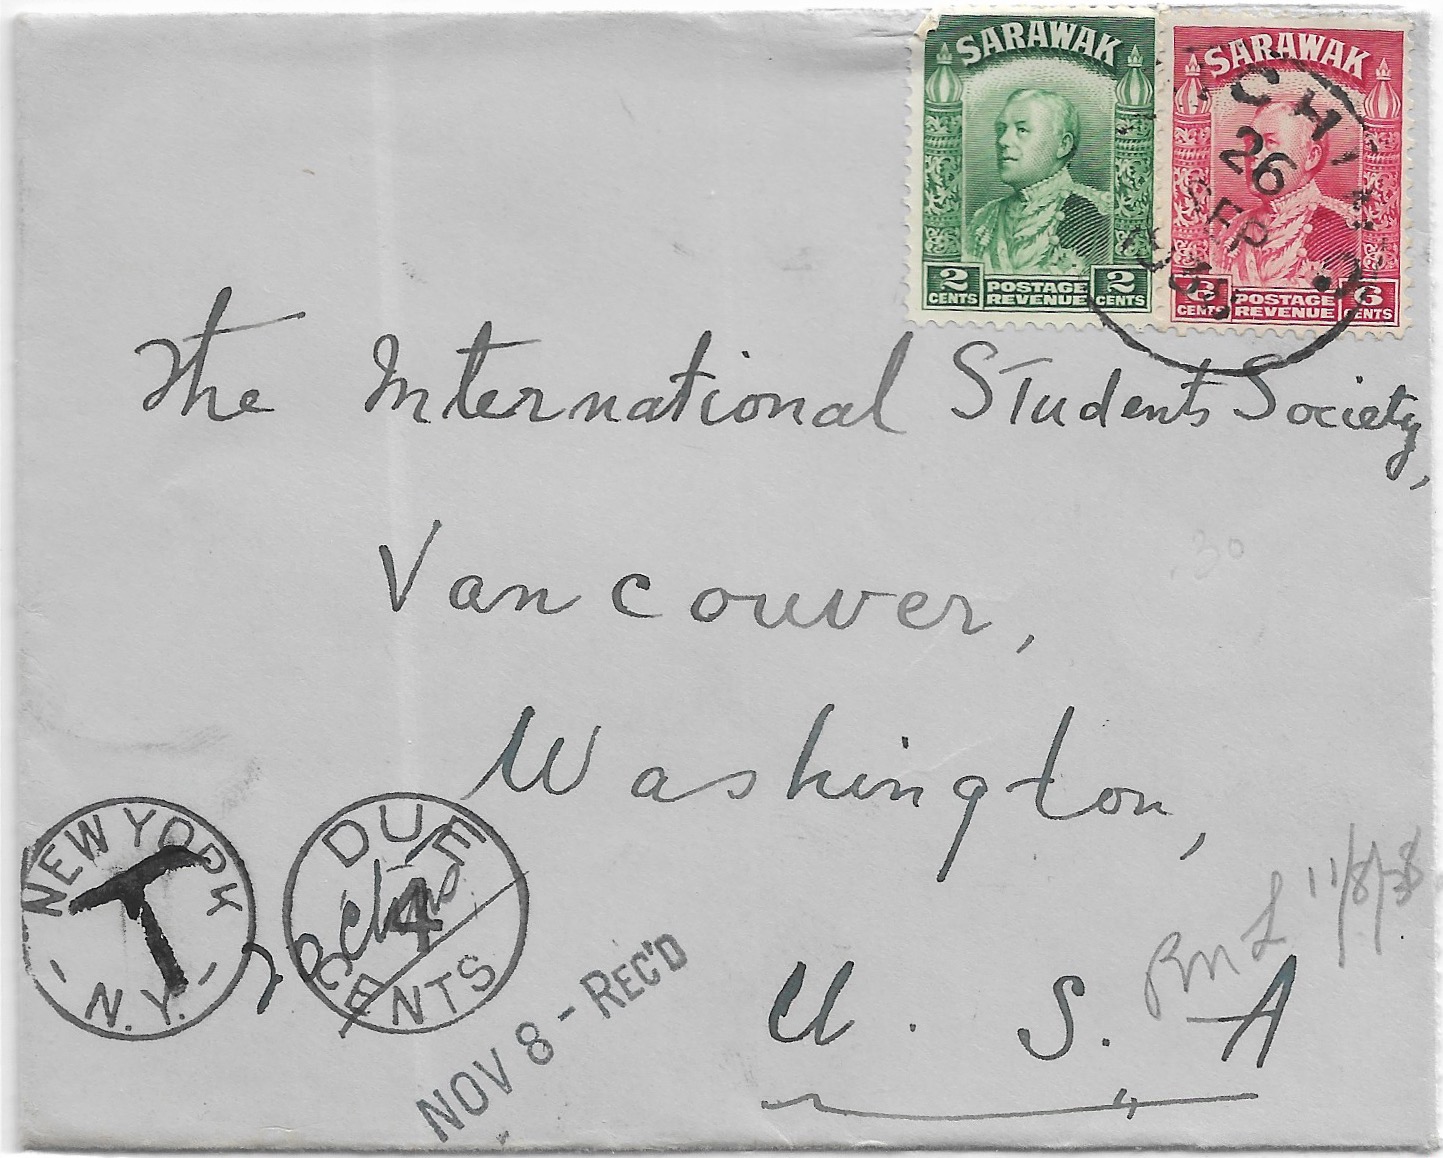 SARAWAK SARAWAK
CHI
26
SEP
2 CENTS POSTAGE REVENUE 2 CENTS
6 CENTS POSTAGE REVENUE 6 CENTS
The International Students Society,
Vancouver,
30
Washington,
U. S. A
NEW YORK
T
- N.Y. -
DUE
4
CENTS
NOV 8 - REC'D
11/8/38